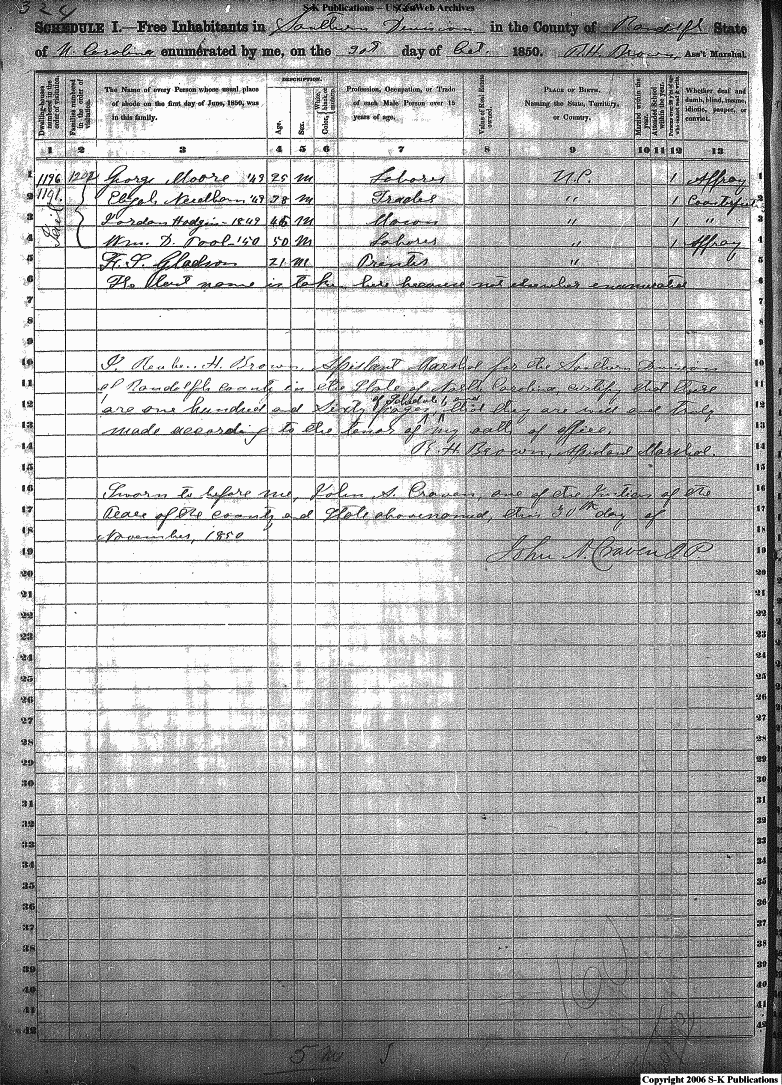 S-K Publications – USGenWeb Archives
324
SCHEDULE I.—Free Inhabitants in Southern Division in the County of Randolph State
of N. Carolina enumerated by me, on the day of Oct. 1850. R H Brown, Ass't Marshal.
Dwelling-houses numbered in the order of visitation.
Families numbered in the order of visitation.
The Name of every Person whose usual place of abode on the first day of June, 1850, was in this family.
DESCRIPTION.
Age.
Sex.
Color, White, black, or mulatto.
Profession, Occupation, or Trade of each Male Person over 15 years of age.
Value of Real Estate owned.
PLACE OF BIRTH. Naming the State, Territory, or Country.
Married within the year.
Attended School within the year.
Whether deaf and dumb, blind, insane, idiotic, pauper, or convict.
1 2 3 4 5 6 7 8 9 10 11 12 13
1 1196 George Moore '49 25 m Laborer N.C. 1 Affray 1
2 1191 Elijah Needham '49 38 m Trader " 1 Counterfeit 2
Jail
3 Jordan Hodgin 1849 46 m Mason " 1 " 3
4 Wm. D. Pool '50 50 m Laborer " 1 Affray 4
5 F. S. Gladson 21 m Prentis " 5
6 The last name is taken here because not elsewhere enumerated 6
7 7
8 8
9 9
10 I, Reuben H. Brown, Assistant Marshal for the Southern Division 10
11 of Randolph County in the State of North Carolina, certify that there 11
of Schedule 1, and
12 are one hundred and sixty pages, that they are well and truly 12
13 made according to the tenor of my oath of office. 13
14 R. H. Brown, Assistant Marshal. 14
15 15
16 Sworn to before me, John A. Craven, one of the Justices of the 16
17 Peace of the County and State above named, this 30th day of 17
18 November, 1850 18
19 John A. Craven J.P. 19
20 20
21 21
22 22
23 23
24 24
25 25
26 26
27 27
28 28
29 29
30 30
31 31
32 32
33 33
34 34
35 35
36 36
37 37
38 38
39 39
40 40
41 41
42 42
5 m
Copyright 2006 S-K Publications